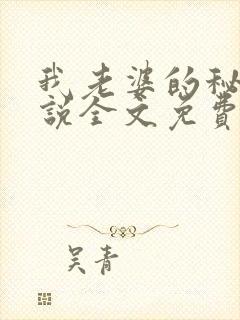 我老婆的秘
说全文免费
吴青